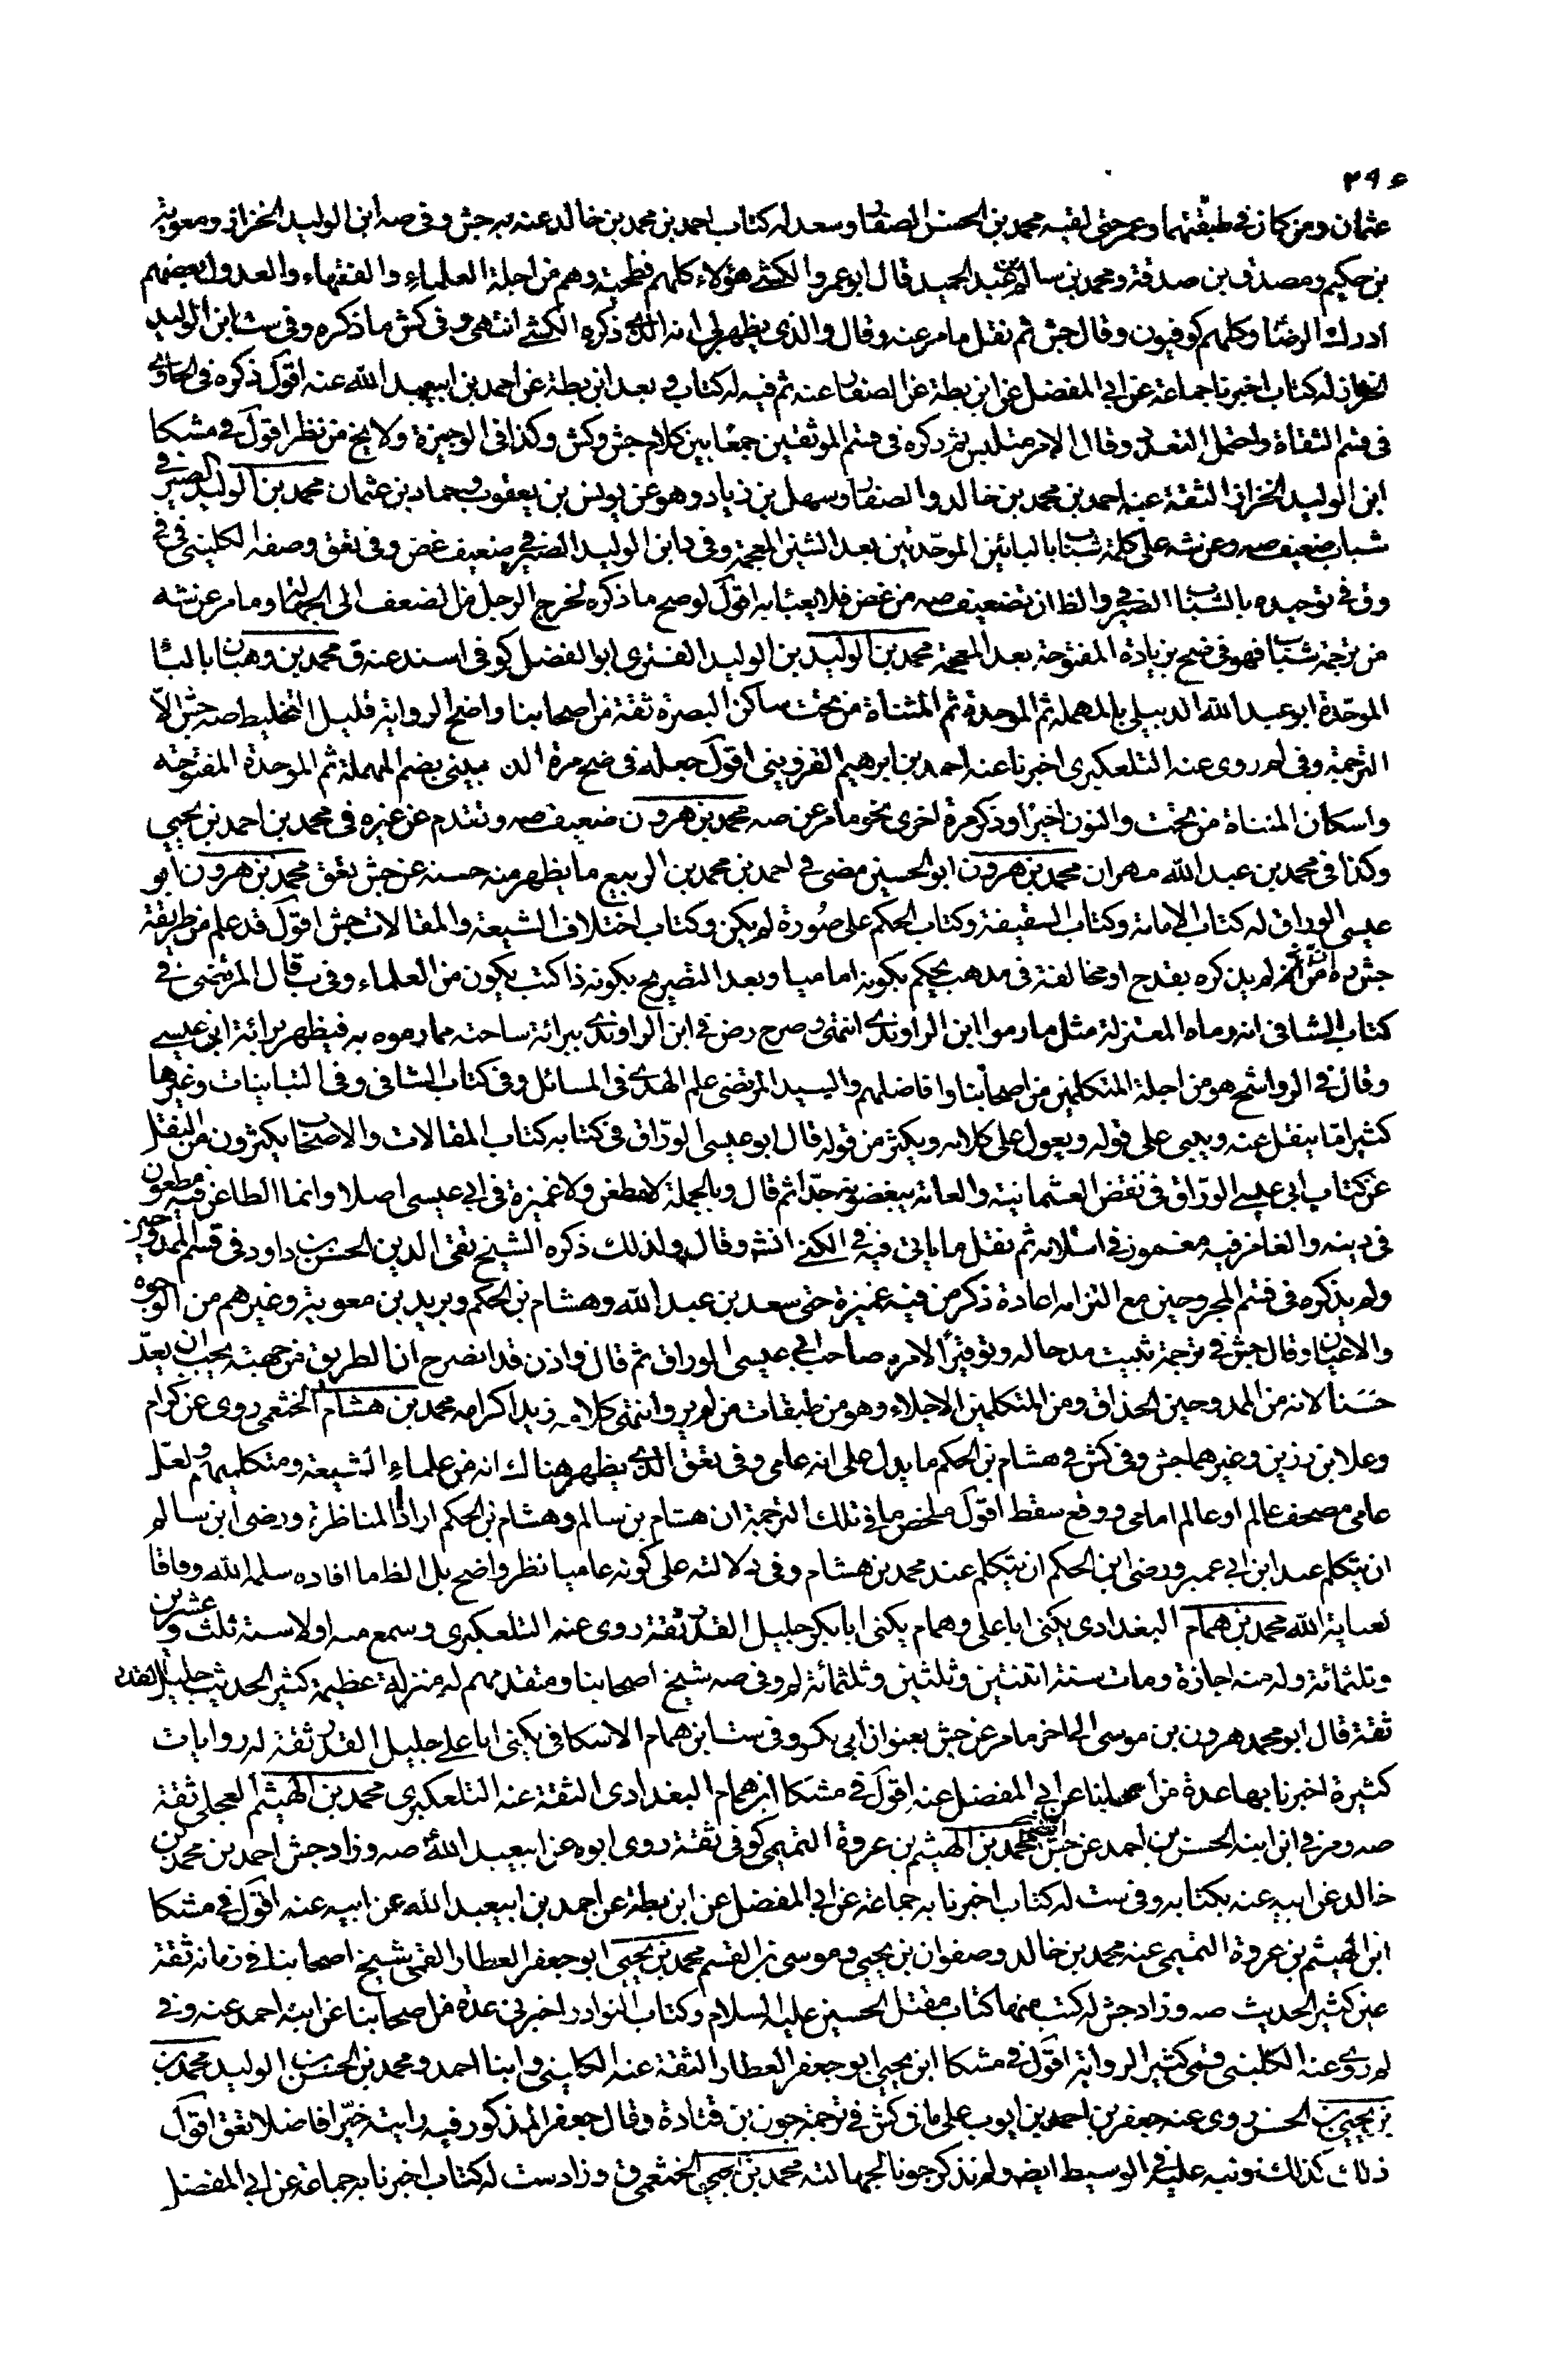 ٢٩۶
عثمان ومن كان في طبقتهما وعمر حتى لقيه محمد بن الحسن الصفار وسعد له كتاب احمد بن محمد بن خالد عنه به جش وفى صه ابن الوليد الخزاز ومعوية
بن حكيم ومصدق بن صدقة ومحمد بن سالم بن عبد الحميد قال ابو عمرو الكشي هؤلاء كلهم فطحية وهم من اجلة العلماء والفقهاء والعدول بعضهم
ادرك الرضا وكلهم كوفيون وقال جش ثم نقل ما مر عنه وقال والذى يظهر لى انه الذى ذكره الكشي انتهى وفى كش ما ذكره وفى ست ابن الوليد
الخزاز له كتاب اخبرنا جماعة عن ابي المفضل عن ابن بطة عن الصفار عنه ثم فيه له كتاب وبعد ابن بطة عن احمد بن ابيعبد الله عنه اقول ذكره فى الحاوى
فى قسم الثقاة واحتمل التعدد وقال الامر متلبس ثم ذكره فى قسم الموثقين جمعا بين كلام جش وكش وكذا فى الوجيزة ولا يخ من نظر اقول في مشكا
ابن الوليد الخزاز الثقة عنه احمد بن محمد بن خالد والصفار وسهل بن زياد وهو عن يونس بن يعقوب وحماد بن عثمان محمد بن الوليد الصيرفي
شباب ضعيف صه وعن شه على كلمة شباب بالبائين الموحدتين بعد الشين المعجمة وفى د ابن الوليد الصيرفي ضعيف غض وفى تعق وصفه الكلينى في
وق في توحيده بالشباب الصيرفي والظ ان تضعيف صه من غض فلا يعبئا به اقول لو صح ما ذكره لخرج الرجل من الضعف الى الجهالة وما مر عن شه
من ترجمة شباب فهو فى ضح بزيادة المفتوحة بعد المعجمة محمد بن الوليد بن الوليد العنزى ابو الفضل كوفى اسند عنه ق محمد بن وهبان بالباء
الموحدة ابو عبد الله الدبيلى بالمهملة ثم الموحدة ثم المثناة من تحت ساكن البصرة ثقة من اصحابنا واضح الرواية قليل التخليط صه جش الا
الترجمة وفى لم روى عنه التلعكبرى اخبرنا عنه احمد بن ابرهيم القزوينى اقول جعله فى ضح مرة الدبيني بضم المهملة ثم الموحدة المفتوحة
واسكان المثناة من تحت والنون اخيرا وذكر مرة اخرى نحو ما مر عن صه محمد بن هرون ضعيف صه وتقدم عن غيره فى محمد بن احمد بن يحيى
وكذا فى محمد بن عبد الله مهران محمد بن هرون ابو الحسين مضى في احمد بن محمد بن الربيع ما يظهر منه حسنه عن جش تعق محمد بن هرون ابو
عيسى الوراق له كتاب الامامة وكتاب السقيفة وكتاب الحكم على صورة لم يكن وكتاب اختلاف الشيعة والمقالات جش اقول قد علم من طريقة
جش ره ان من لم يذكره بقدح او مخالفة فى مذهب يحكم بكونه اماميا وبعد التصريح بكونه ذا كتب يكون من العلماء وفى ب قال المرتضى في
كتاب الشافى انه رماه المعتزلة مثل ما رموا ابن الراوندي انتهى وصرح رض في ابن الراوندي ببرائة ساحته مما رموه به فيظهر برائة ابى عيسى
وقال في الرواشح هو من اجلة المتكلمين من اصحابنا وافاضلهم والسيد المرتضى علم الهدى فى المسائل وفى كتاب الشافى وفى التبانيات وغيرها
كثيرا ما ينقل عنه ويبنى على قوله ويعول على كلامه ويكثر من قوله قال ابو عيسى الوراق فى كتابه كتاب المقالات والاصحاب يكثرون من النقل
عن كتاب ابى عيسى الوراق فى نقض العثمانية والعامة يبغضونه جدا ثم قال وبالجملة لا مطعن ولا غميزة فى ابي عيسى اصلا وانما الطاعن فيه مطعون
فى دينه والغامز فيه مغموز في اسلامه ثم نقل ما ياتى فيه في الكنى انش وقال ولذلك ذكره الشيخ تقى الدين الحسن بن داود فى قسم الممدوحين
ولم يذكره فى قسم المجروحين مع التزامه اعادة ذكر من فيه غميزة حتى سعد بن عبد الله وهشام بن الحكم وبريد بن معوية وغيرهم من الوجوه
والاعيان وقال جش في ترجمة ثبيت مدحا له وتوقيرا لامره صاحب ابي عيسى الوراق ثم قال فاذن قد انصرح ان الطريق من جهته يجب ان يعد
حسنا لانه من الممدوحين الحذاق ومن المتكلمين الاجلاء وهو من طبقات من لم يرو انتهى كلامه زيد اكرامه محمد بن هشام الخثعمى روى عن كرام
وعلا بن رزين وغيرهما جش وفى كش في هشام بن الحكم ما يدل على انه عامى وفى تعق الذى يظهر هناك انه من علماء الشيعة ومتكلميهم ولعل
عامى مصحف عالم او عالم امامى ووقع سقط اقول ملخص ما في تلك الترجمة ان هشام بن سالم وهشام بن الحكم ارادا المناظرة ورضى ابن سالم
ان يتكلم عند ابن ابي عمير ورضى ابن الحكم ان يتكلم عند محمد بن هشام وفى دلالته على كونه عاميا نظر واضح بل الظ ما افاده سلمه الله وفاقا
لعناية الله محمد بن همام البغدادى يكنى ابا على وهمام يكنى ابا بكر جليل القدر ثقة روى عنه التلعكبرى وسمع منه اولا سنة ثلث وعشرين
وثلثمائة وله منه اجازة ومات سنة اثنتين وثلثين وثلثمائة لم وفى صه شيخ اصحابنا ومتقدمهم له منزلة عظيمة كثير الحديث جليل القدر
ثقة قال ابو محمد هرون بن موسى الى اخر ما مر عن جش بعنوان ابن ابي بكر وفى ست ابن همام الاسكافى يكنى ابا على جليل القدر ثقة له روايات
كثيرة اخبرنا بها عدة من اصحابنا عن ابي المفضل عنه اقول في مشكا ابن همام البغدادى الثقة عنه التلعكبرى محمد بن الهيثم العجلى ثقة
صه ومر في ابن ابنه الحسن بن احمد عن جش محمد بن الهيثم بن عروة التميمى كوفى ثقة روى ابوه عن ابيعبد الله صه وزاد جش احمد بن محمد بن
خالد عن ابيه عنه بكتابه وفى ست له كتاب اخبرنا به جماعة عن ابي المفضل عن ابن بطة عن احمد بن ابيعبد الله عن ابيه عنه اقول في مشكا
ابن الهيثم بن عروة التميمى عنه محمد بن خالد وصفوان بن يحيى وموسى بن القسم محمد بن يحيى ابو جعفر العطار القمى شيخ اصحابنا في زمانه ثقة
عين كثير الحديث صه وزاد جش له كتب منها كتاب مقتل الحسين عليه السلام وكتاب النوادر اخبرني عدة من اصحابنا عن ابنه احمد عنه وفى
لم روى عنه الكلينى قمى كثير الرواية اقول في مشكا ابن يحيى ابو جعفر العطار الثقة عنه الكلينى وابنا احمد ومحمد بن الحسن بن الوليد محمد بن
بن يحيى بن الحسن روى عنه جعفر بن احمد بن ايوب على ما فى كش في ترجمة جون بن قتادة وقال جعفر المذكور فيه رايته خيرا فاضلا تعق اقول
ذلك كذلك ونبه عليه في الوسيط ايضه ولم نذكر جونا لجهالته محمد بن يحيى الخثعمى ق وزاد ست له كتاب اخبرنا به جماعة عن ابي المفضل